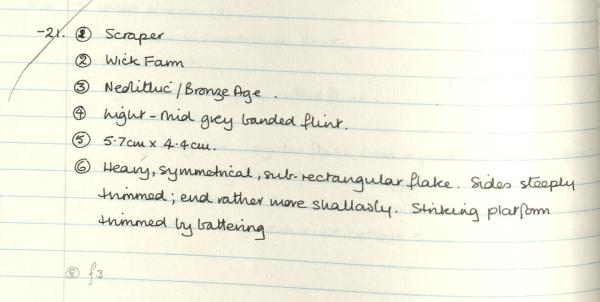 -21. ① Scraper
② Wick Farm
③ Neolithic/Bronze Age.
④ Light-Mid grey banded flint.
⑤ 5.7cm x 4.4cm.
⑥ Heavy, symmetrical, sub-rectangular flake. Sides steeply
trimmed; end rather more shallasly. Striking platform
trimmed by battering
⑧ f3